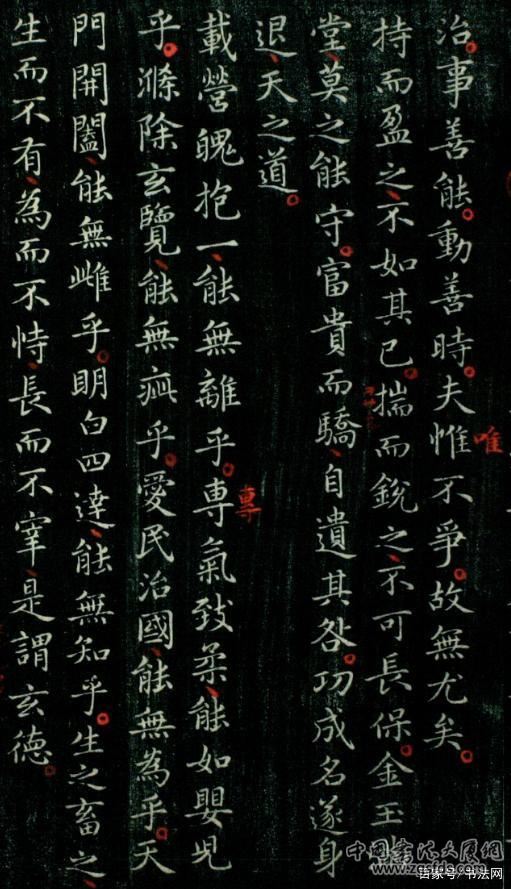 治事善能動善時夫惟不爭故無尤矣
唯
持而盈之不如其已揣而銳之不可長保金玉
堂莫之能守富貴而驕自遺其咎功成名遂身
退天之道
載營魄抱一能無離乎専氣致柔能如嬰児
專
乎滌除玄覽能無疵乎愛民治國能無為乎天
門開闔能無雌乎明白四達能無知乎生之畜之
生而不有為而不恃長而不宰是謂玄德
中国书法大厦网
www.zgsfds.com
百家号/书法网